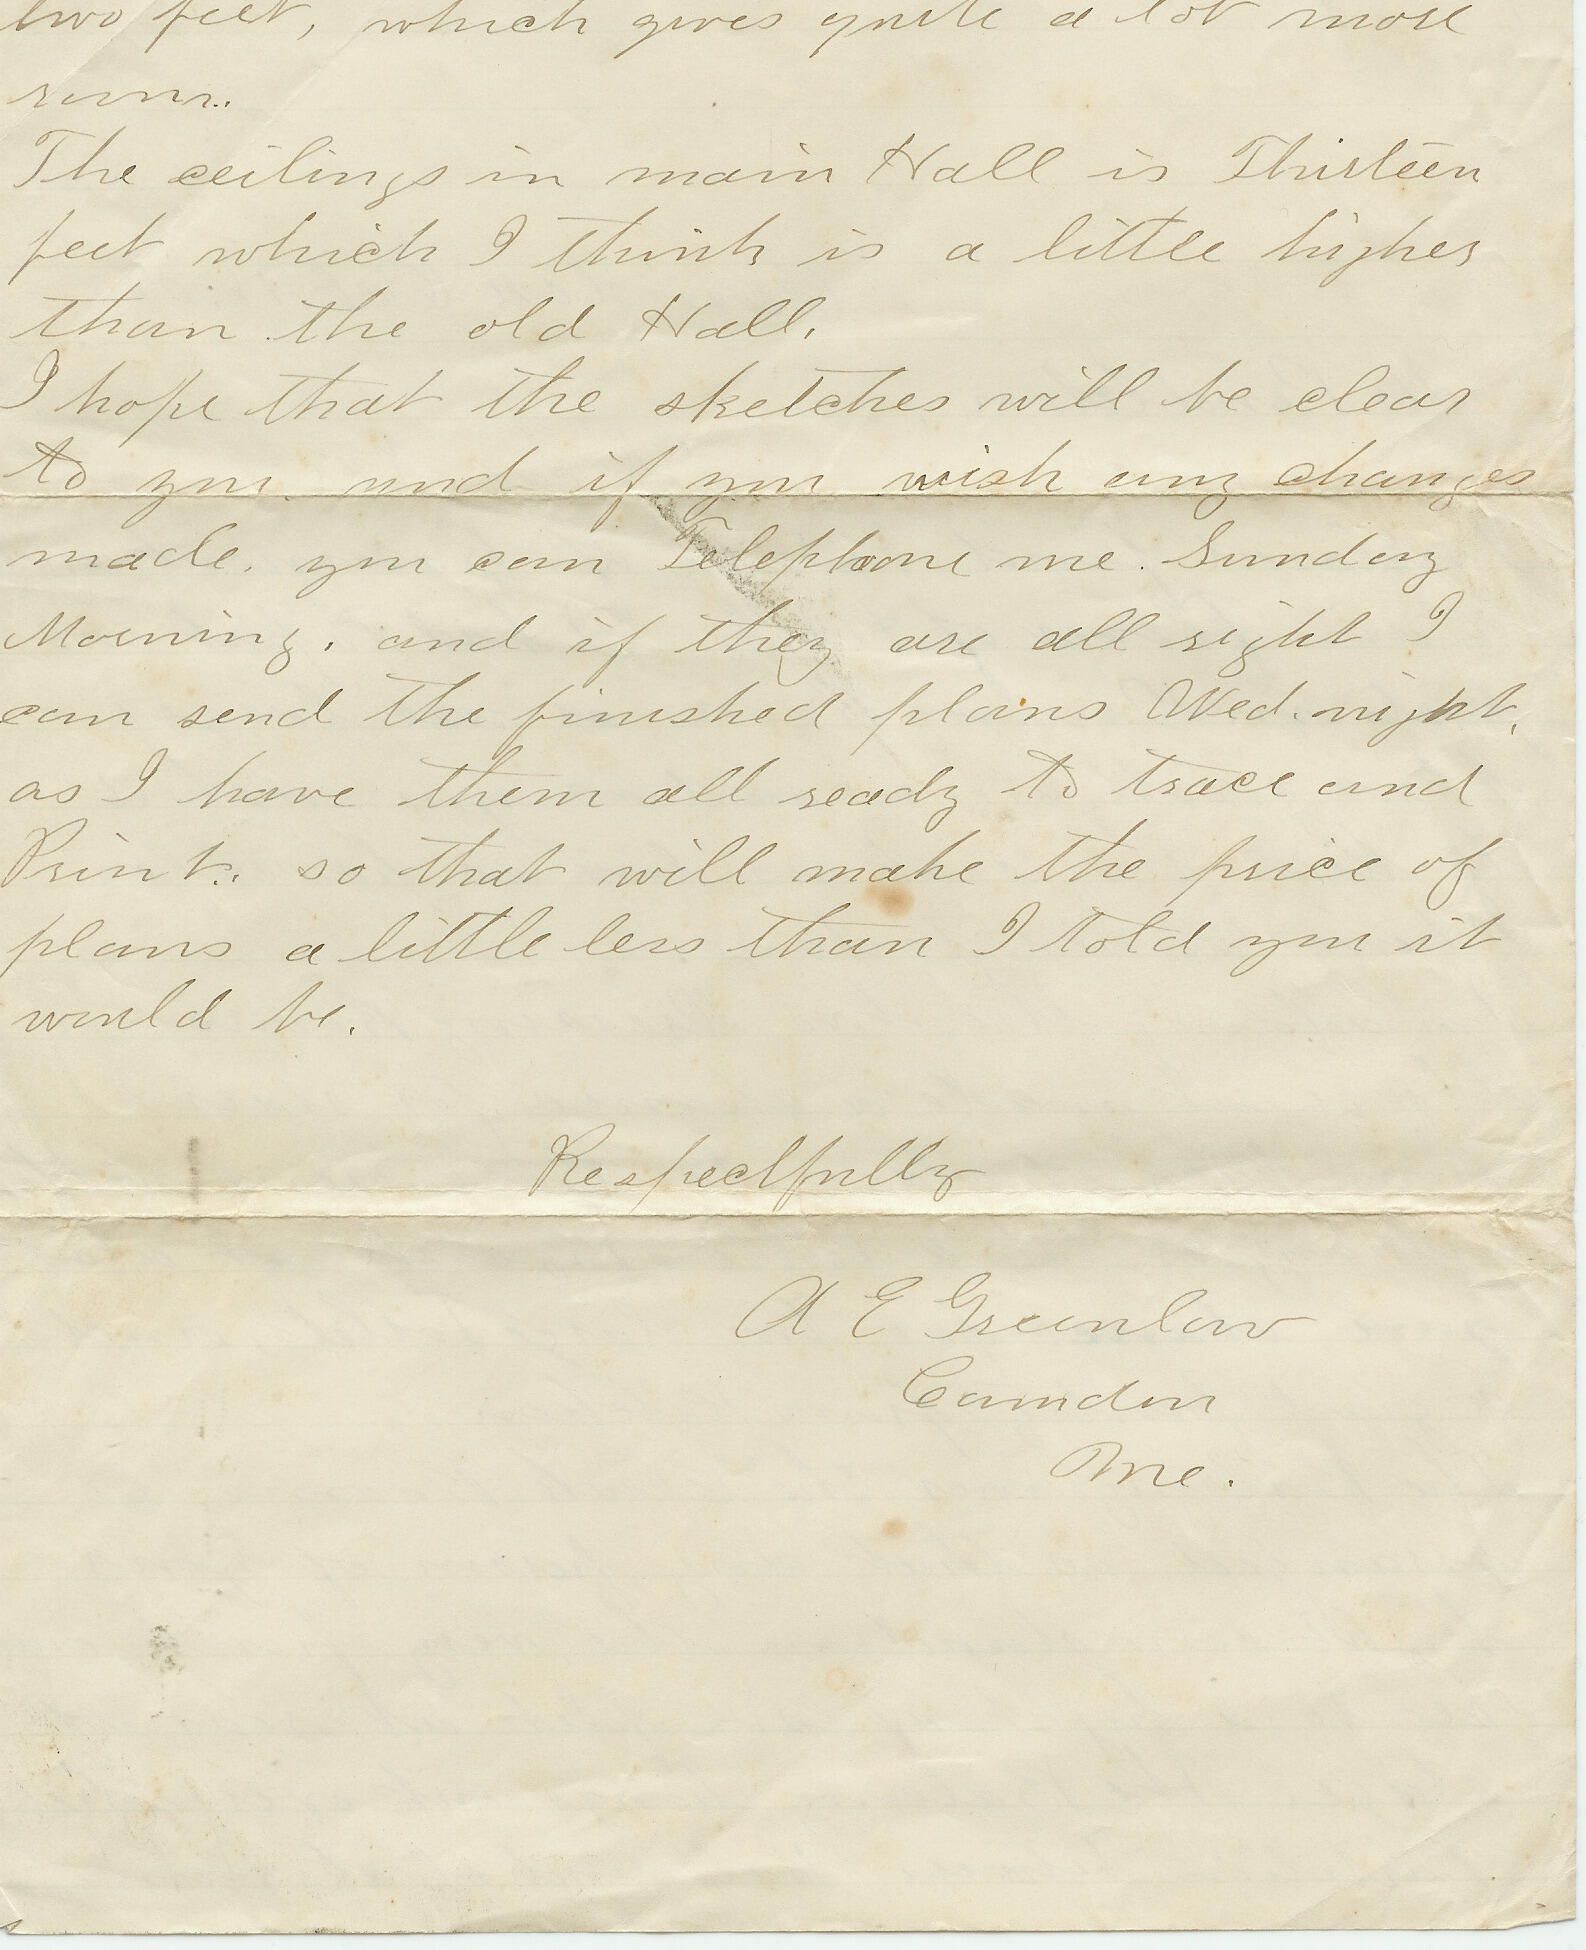 two feet, which gives quite a lot more
room.
The ceilings in main Hall is Thirteen
feet which I think is a little higher
than the old Hall.
I hope that the sketches will be clear
to you. and if you wish any changes
made. you can Telephone me. Sunday
Morning. and if they are all right I
can send the finished plans Wed. night.
as I have them all ready to trace and
Print. so that will make the price of
plans a little less than I told you it
would be.
Respectfully
A E Greenlaw
Camden
Me.